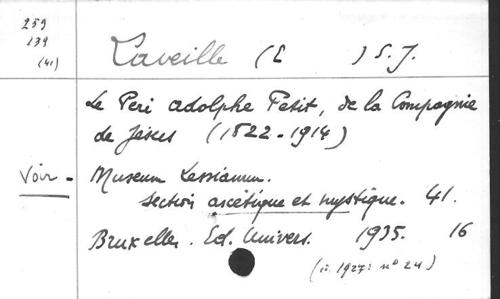 259
139
(41)
Laveille (E ) S.J.
Le Peri Adolphe Petit, de la Compagnie
de Jésus (1822-1914)
Voir - Museum Lessianum.
Section ascétique et mystique. 41.
Bruxelles. Ed. Univers. 1935. 16
(ii. 1927: n° 24)